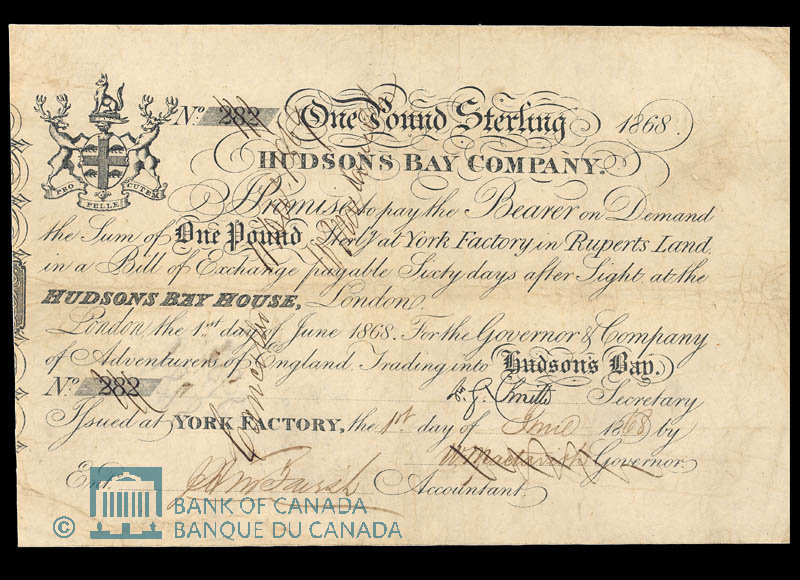 No. 282 One Pound Sterling 1868.
HUDSONS BAY COMPANY.
PRO PELLE CUTEM
I Promise to pay the Bearer on Demand
the Sum of One Pound Sterlg. at York Factory in Ruperts Land
in a Bill of Exchange payable Sixty days after Sight at the
HUDSONS BAY HOUSE, London.
London, the 1st day of June 1868. For the Governor & Company
of Adventurers of England Trading into Hudson's Bay.
No. 282
Secretary
Issued at YORK FACTORY, the 1st day of 1868 by
Governor.
Entd. Accountant.
Cancelled
© BANK OF CANADA
BANQUE DU CANADA